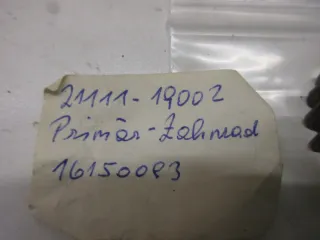 21111-19002
Primär-Zahnrad
16150093